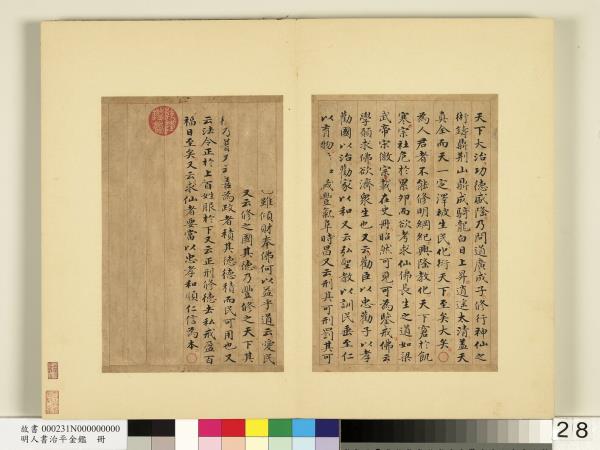 天下大治功德盛隆乃問道廣成子修行神仙之
術鑄鼎荊山鼎成騎龍白日上昇逍遙太清蓋天
真全而天一定澤被生民化行天下至矣大矣
為人君者不能修明綱紀興隆教化天下窘於飢
寒宗社危於累卵而欲考求仙佛長生之道如梁
武帝宗徽宗載在史冊昭然可見可為鑒戒佛云
學願求佛欲濟眾生也又云勸臣以忠勸子以孝
勸國以治勸家以和又云弘聖教以訓民垂至仁
以育物
咸豐氣阜時昌又云刑其可刑罰其可
雖傾財奉佛何以益乎道云愛民
又云修之國其德乃豐修之天下其
乃普
善為政者積其德德積而民可用也又
云法令正於上百姓服於下又云正刑修德去私戒盈百
福日至矣又云求仙者要當以忠孝和順仁信為本
故書 000231N000000000
明人書治平金鑑 冊
28